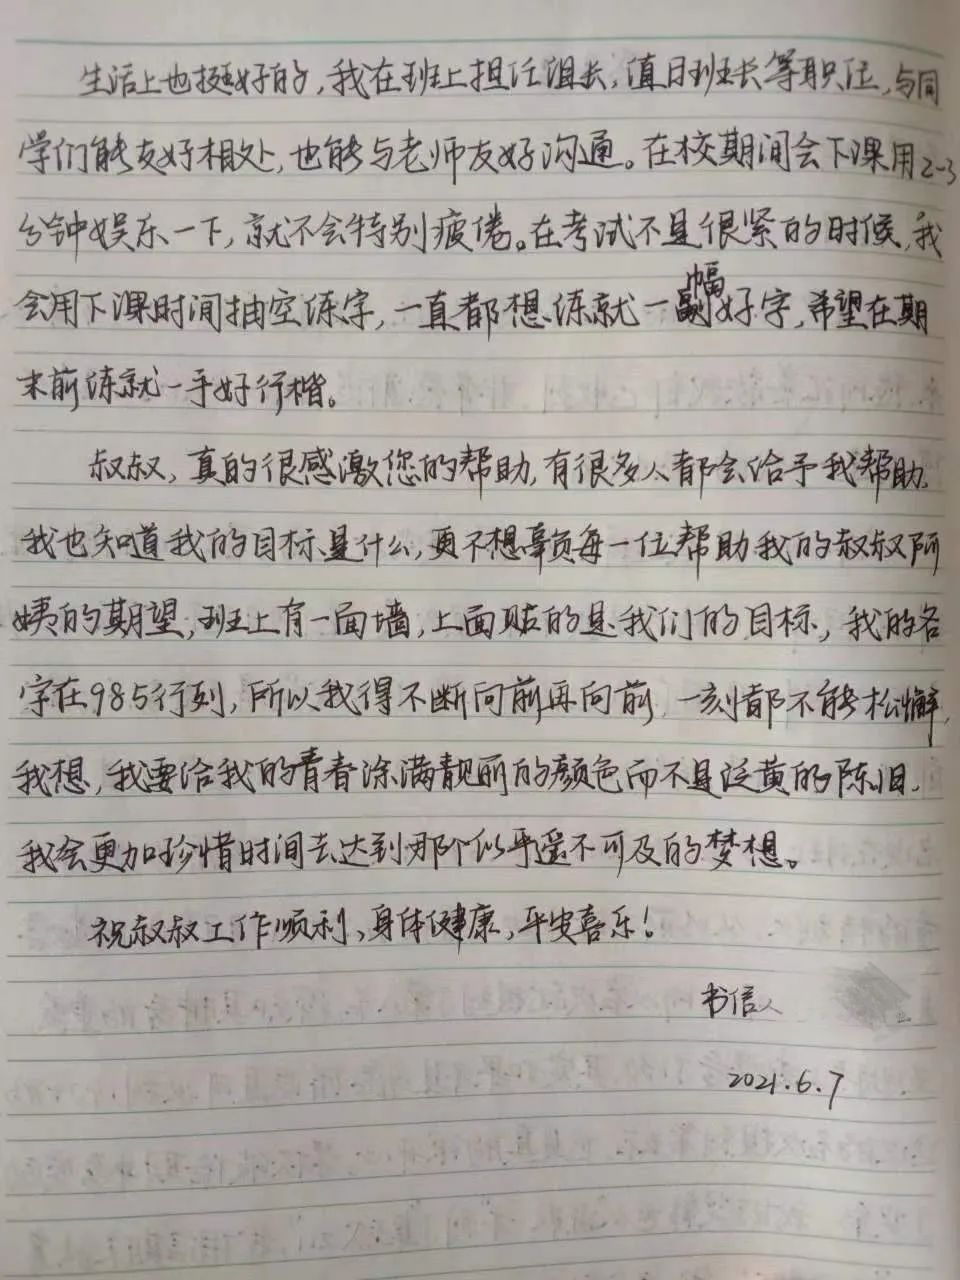 生活上也挺好的,我在班上担任组长,值日班长等职位,与同
学们能友好相处,也能与老师友好沟通。在校期间会下课用2-3
分钟娱乐一下,就不会特别疲倦。在考试不是很紧的时候,我
会用下课时间抽空练字,一直都想练就一幅好字,希望在期
末前练就一手好行楷。
叔叔,真的很感激您的帮助,有很多人都会给予我帮助,
我也知道我的目标是什么,更不想辜负每一位帮助我的叔叔阿
姨的期望,班上有一面墙,上面贴的是我们的目标,我的名
字在985行列,所以我得不断向前再向前,一刻都不能松懈,
我想,我要给我的青春涂满靓丽的颜色而不是泛黄的陈旧,
我会更加珍惜时间去达到那个似乎遥不可及的梦想。
祝叔叔工作顺利,身体健康,平安喜乐!
书信人
2021.6.7